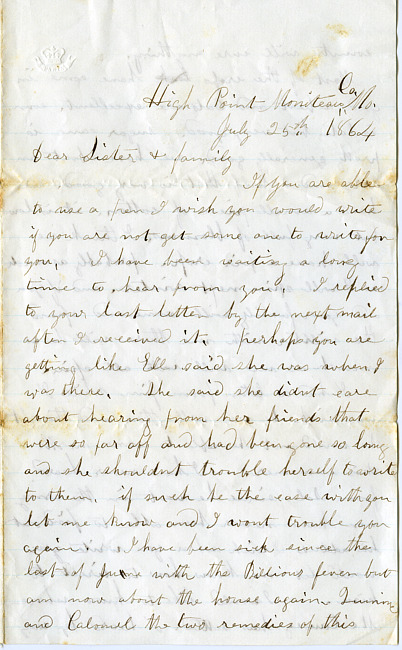 High Point Moniteau Co Mo.
July 25th 1864
Dear Sister & family
If you are able
to use a pen I wish you would write
if you are not get some one to write for
you. I have been waiting a long
time to hear from you. I replied
to your last letter by the next mail
after I received it. perhaps you are
getting like Ell. said she was when I
was there. She said she didnt care
about hearing from her friends that
were so far off and had been gone so long
and she shouldnt trouble herself to write
to them. if such be the case with you
let me know and I wont trouble you
again. I have been sick since the
last of June with the Billious fever but
am now about the house again Quinine
and Calomel the two remedies of this